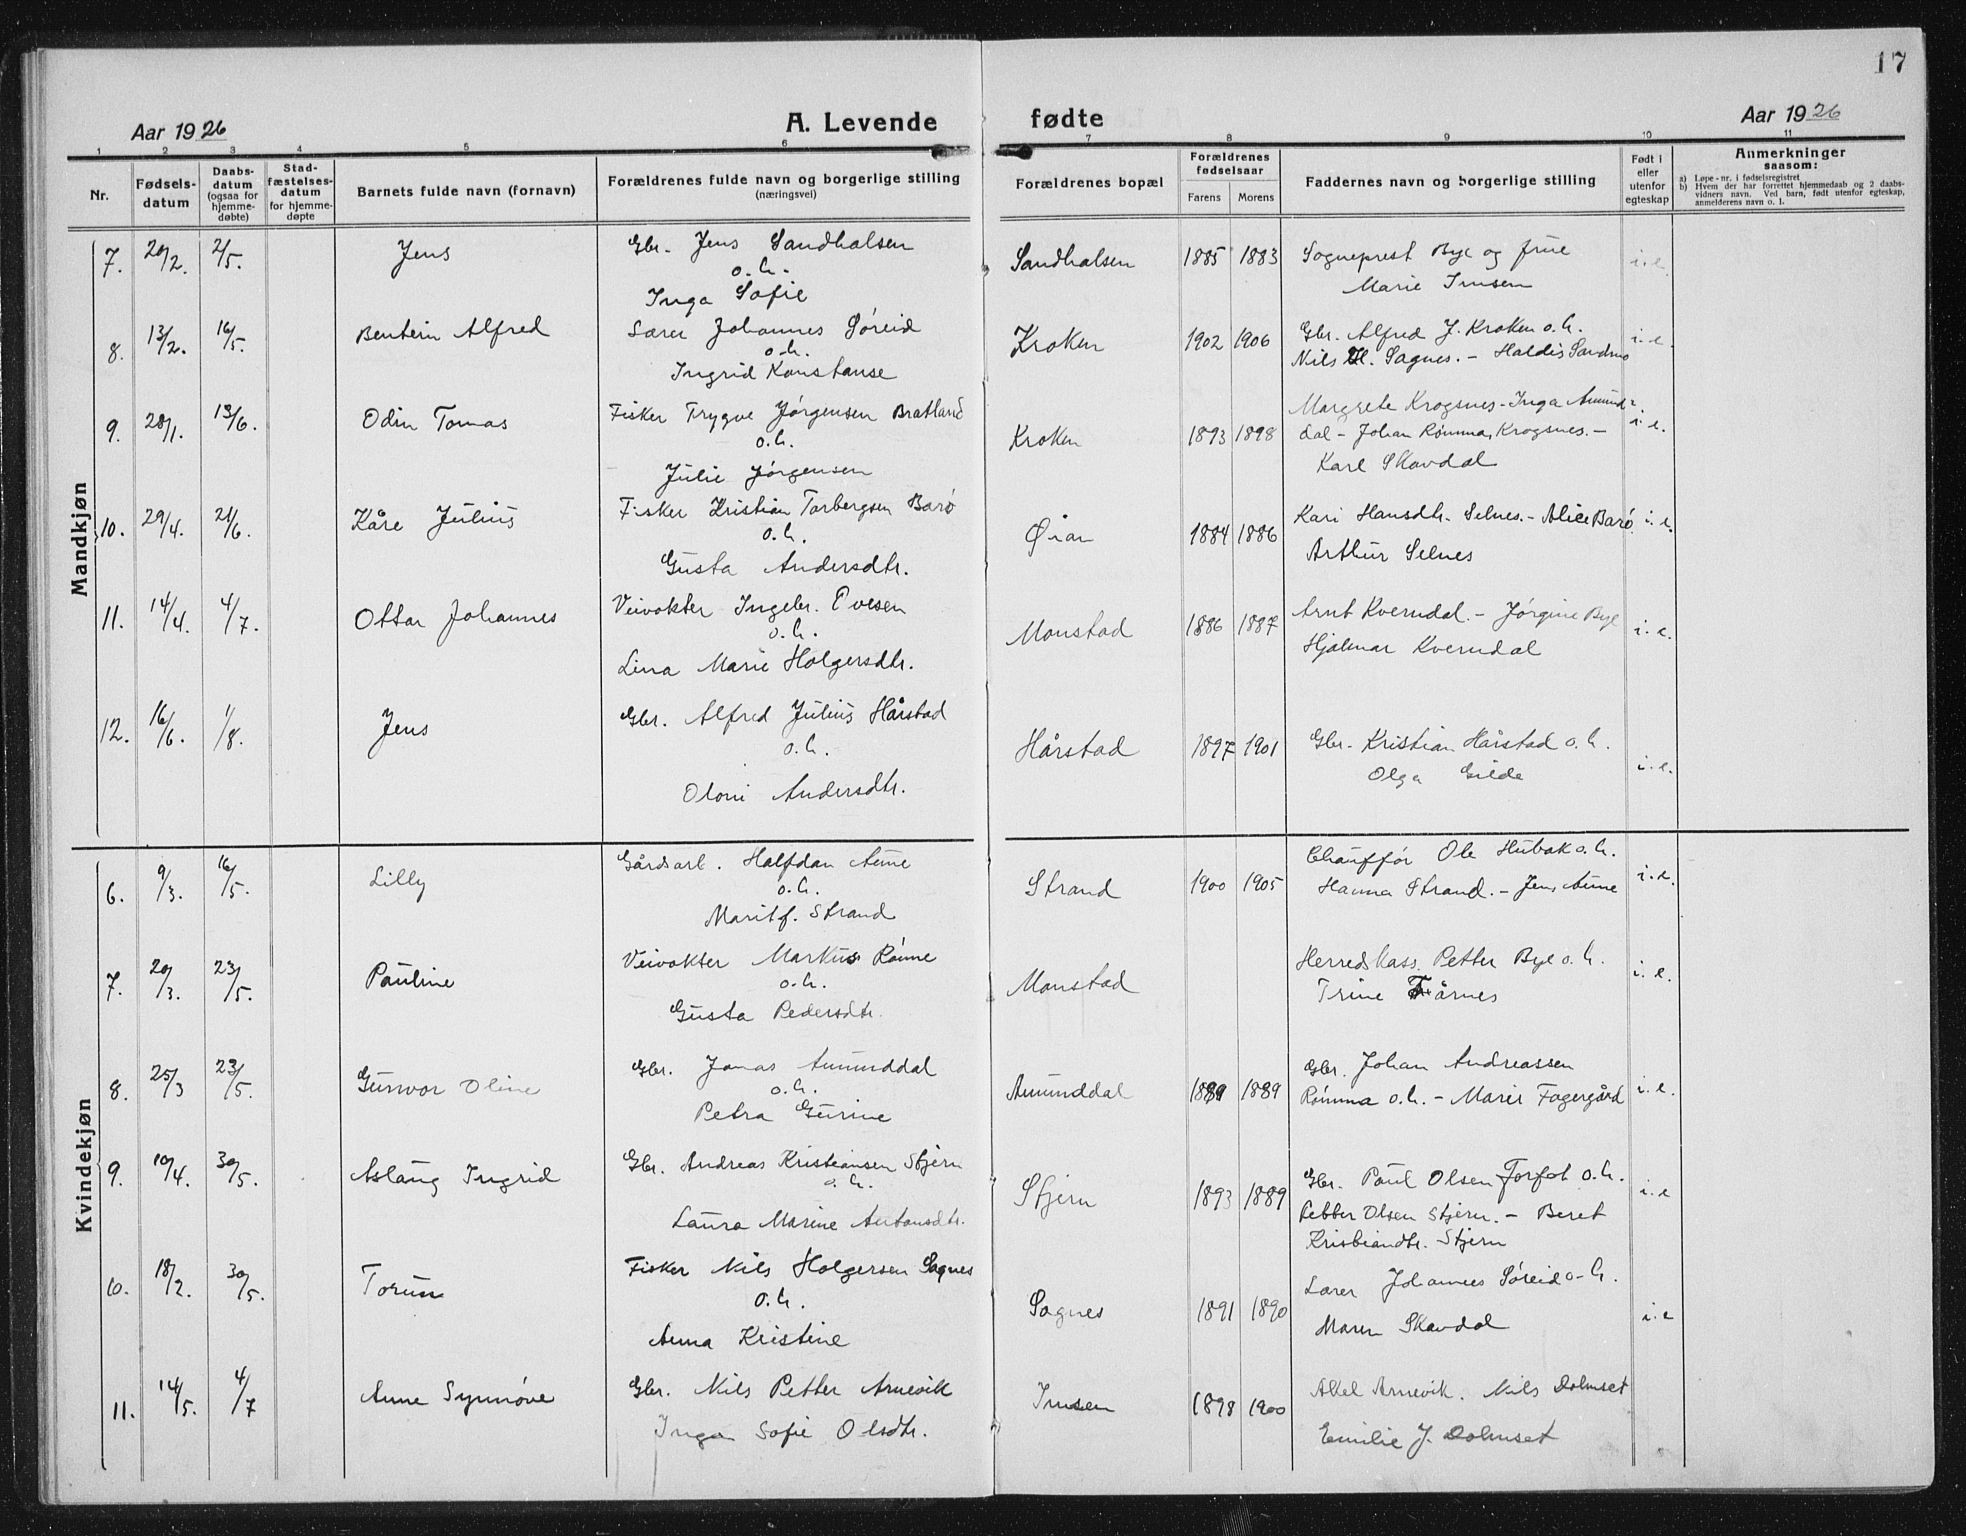 17
Aar 1926
A. Levende
fødte
Aar 1926
1 2 3 4 5 6 7 8 9 10 11
Nr.
Fødsels-
datum
Daabs-
datum
(ogsaa for
hjemme-
døbte)
Stad-
fæstelses-
datum
for hjemme-
døpte
Barnets fulde navn (fornavn)
Forældrenes fulde navn og borgerlige stilling
(næringsvei)
Forældrenes bopæl
Forældrenes
fødselsaar
Farens Morens
Faddernes navn og borgerlige stilling
Født i
eller
utenfor
egteskap
Anmerkninger
saasom:
a) Løpe-nr. i fødselsregistret
b) Hvem der har forrettet hjemmedaab og 2 daabs-
vidners navn. Ved barn, født utenfor egteskap,
anmelderens navn o. l.
Mandkjøn
7. 20/2. 2/5. Jens Gbr. Jens Sandhalsen Sandhalsen 1885 1883 Sogneprest Bye og frue i. e.
o. h.
Inga Sofie Marie Imsen
8. 13/2. 16/5. Bentein Alfred Lærer Johannes Søreid Kroken 1902 1906 Gbr. Alfred J. Kroken o. h. i. e.
o. h. Nils H. Sagnes. - Haldis Sandmo
Ingrid Konstanse
9. 28/1. 13/6. Odin Tomas Fisker Trygve Jørgensen Bratland Kroken 1893 1898 Margrete Krogsnes - Inga Amund-
o. h. dal - Johan Rømma, Krogsnes. - i. e.
Julie Jørgensen Karl Skavdal
10. 29/4. 21/6. Kåre Julius Fisker Kristian Torbergsen Barø Øian 1884 1886 Kari Hansdtr. Selnes. - Alice Barø i. e.
o. h. Arthur Selnes
Gusta Andersdtr.
11. 14/4. 4/7. Ottar Johannes Veivokter Ingebr. Tvesen Monstad 1886 1887 Arnt Kverndal. - Jørgine Bye i. e.
o. h. Hjalmar Kverndal
Lina Marie Holgersdtr.
12. 16/6. 1/8. Jens Gbr. Alfred Julius Hårstad Hårstad 1897 1901 Gbr. Kristian Hårstad o. h. i. e.
o. h. Olga Gilde
Oloni Andersdtr.
Kvindekjøn
6. 9/3. 16/5. Lilly Gårdsarb. Halfdan Aune Strand 1900 1905 Chauffør Ole Hubak o. h. i. e.
o. h. Hanna Strand. - Jens Aune
Marit f. Strand
7. 20/3. 23/5. Pauline Veivokter Markus Rønne Monstad Herredskass. Petter Bye o. h. i. e.
o. h. Trine Tårnes
Gusta Pedersdtr.
8. 25/3 23/5. Gunvor Oline Gbr. Jonas Amunddal Amunddal 1889 1889 Gbr. Johan Andreassen i. e.
o. h. Rømma o. h. - Marie Fagergård
Petra Gurine
9. 10/4. 30/5. Aslaug Ingrid Gbr. Andreas Kristiansen Stjern Stjern 1893 1889 Gbr. Paul Olsen Forfot o. h. i. e
o. h. Petter Olsen Stjern. - Beret
Laura Marine Antonsdtr. Kristiandtr. Stjern
10. 18/2. 30/5. Torun Fisker Nils Holgersen Sagnes Sagnes 1891 1890 Lærer Johannes Søreid o. h. i. e
o. h. Maren Skavdal
Anna Kristine
11. 14/5. 4/7 Anne Synnøve Gbr. Nils Petter Arnevik Imsen 1898 1900 Aksel Arnevik. Nils Dolmset
Inga Sofie Olsdtr. Emilie J. Dolmset